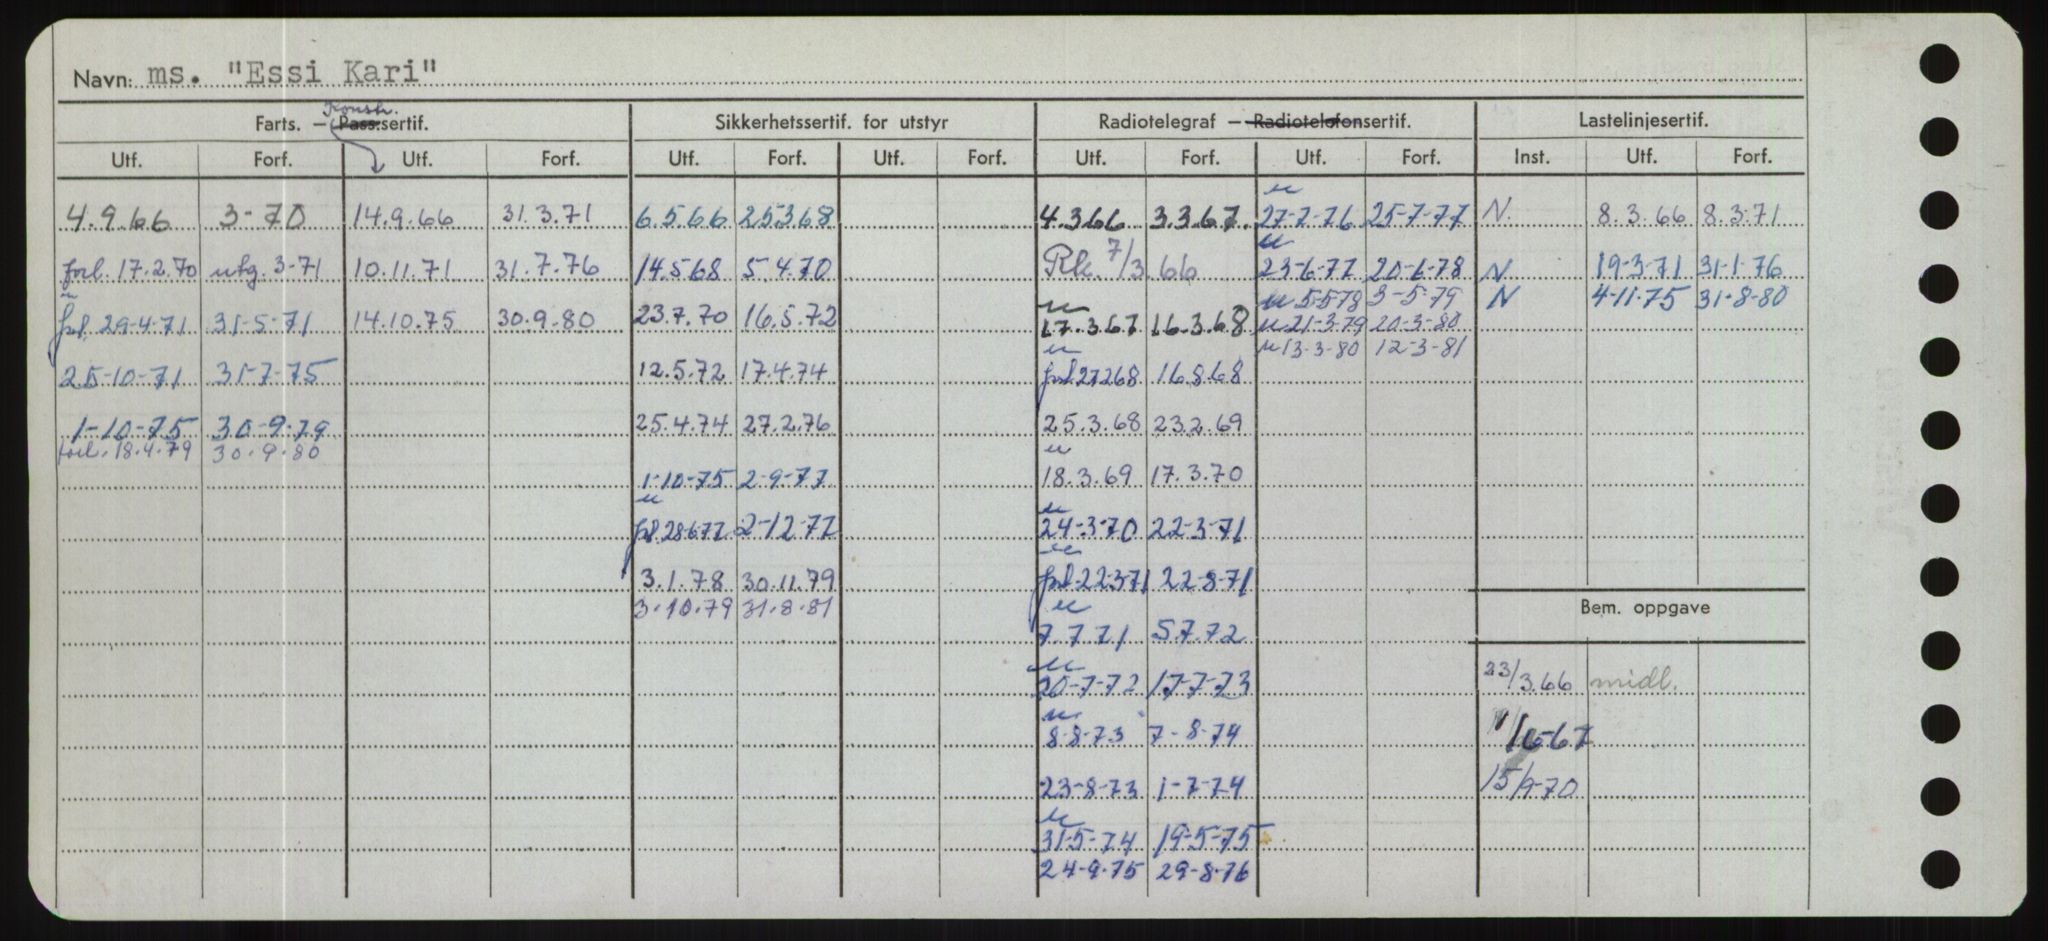 Navn: ms. "Essi Kari"
Konstr.
Farts. — Pass.sertif. Sikkerhetssertif. for utstyr Radiotelegraf — Radiotelefonsertif. Lastelinjesertif.
Utf. Forf. Utf. Forf. Utf. Forf. Utf. Forf. Utf. Forf. Utf. Forf. Inst. Utf. Forf.
4.9.66 3-70 14.9.66 31.3.71 6.5.66 25.3.68 4.3.66 3.3.67. 27-7-76 25-7-77 N. 8.3.66 8.3.71
forl. 17.2.70 utg. 3-71 10.11.71 31.7.76 14.5.68 5.4.70 Rk. 7/3.66 23-6-77 20-6-78 N 19-3-71 31-1-76
5-5-78 3-5-79 N 4-11-75 31-8-80
forl. 29-4-71 31-5-71 14.10.75 30.9.80 23.7.70 16.5.72 17.3.67 16.3.68 21-3-79 20-3-80
13-3-80 12-3-81
25-10-71 31-7-75 12.5.72 17.4.74 forl 27.2.68 16.8.68
1-10-75 30-9-79 25.4.74 27.2.76 25.3.68 23.2.69
forl. 18.4.79 30.9.80
1-10-75 2-9-77 18.3.69 17.3.70
forl. 28-6-77 2-12-77 24-3-70 22-3-71
3.1.78 30.11.79 forl. 22-3-71 22-8-71
3.10.79 31.8.81 Bem. oppgave
7 7 71 5.7.72
20-7-72 17-7-73 23/3.66 midl.
8-8-73 7-8-74
23-8-73 1-7-74 15/9-70
31-5-74 19-5-75
24-9-75 29-8-76